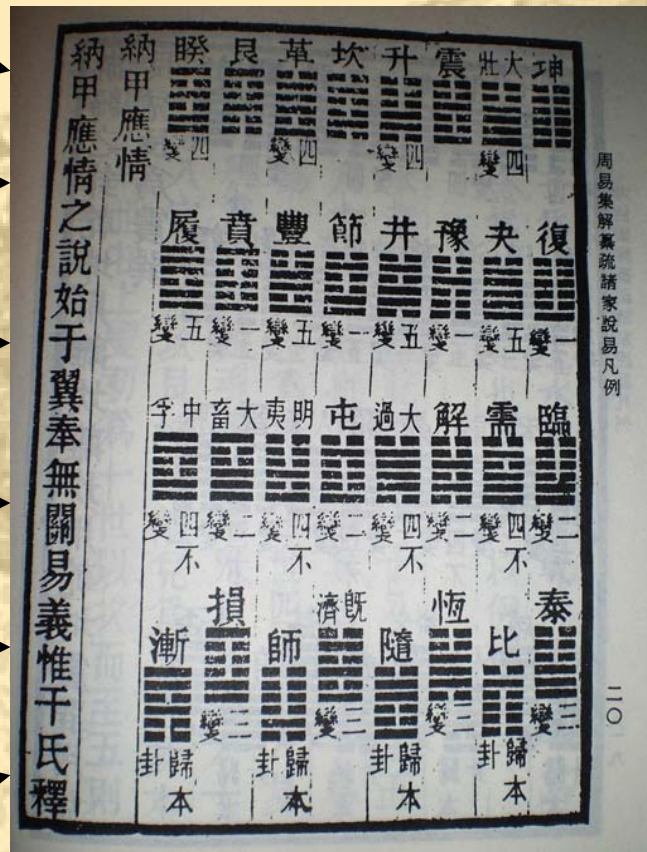 周易集解纂疏諸家說易凡例 二〇
坤 復 一變 臨 二變 泰 三變
大壯 四變 夬 五變 需 四不變 比 歸本卦
震 豫 一變 解 二變 恆 三變
升 四變 井 五變 大過 四不變 隨 歸本卦
坎 節 一變 屯 二變 既濟 三變
革 四變 豐 五變 明夷 四不變 師 歸本卦
艮 賁 一變 大畜 二變 損 三變
睽 四變 履 五變 中孚 四不變 漸 歸本卦
納甲應情
納甲應情之說始于翼奉無關易義惟干氏釋